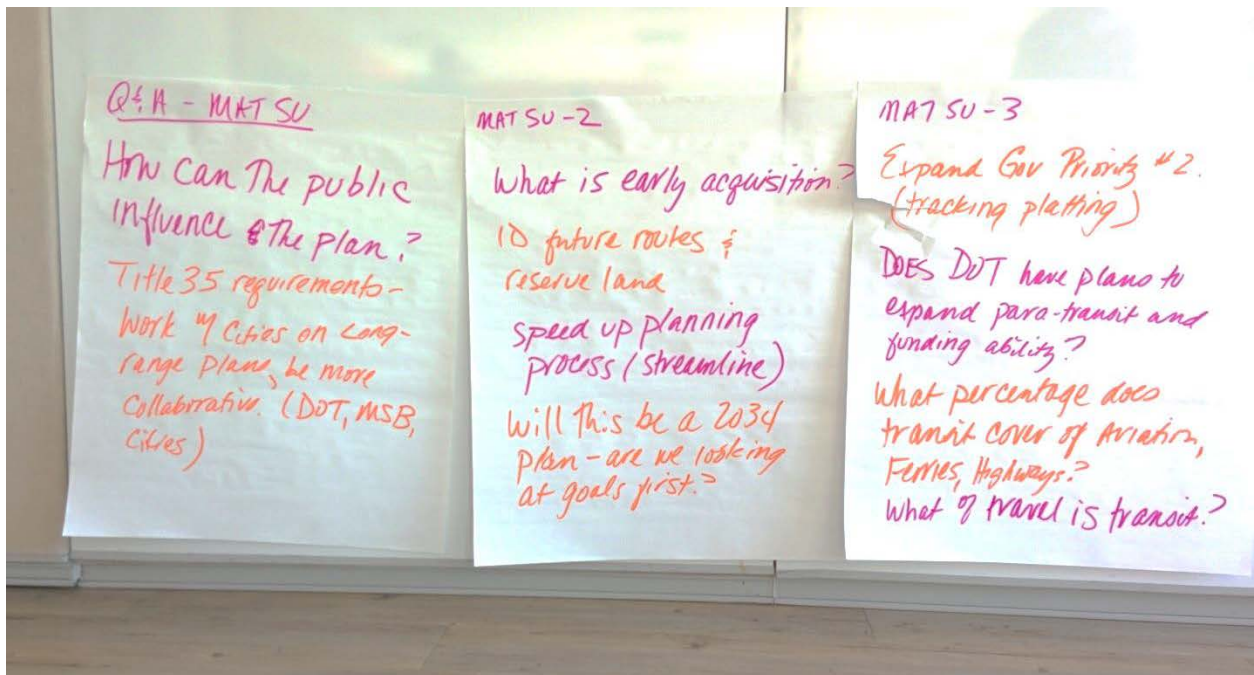 Q & A - MAT SU
How Can The public
influence The plan?
Title 35 requirements -
Work w/ Cities on Long-
range plans, be more
Collaborative. (DOT, MSB,
Cities)
MAT SU - 2
What is early acquisition?
ID future routes &
reserve land
speed up planning
process (streamline)
Will this be a 2034
plan - are we looking
at goals first?
MAT SU - 3
Expand Gov Priority #2.
(tracking platting)
DOES DOT have plans to
expand para-transit and
funding ability?
What percentage does
transit cover of Aviation,
Ferries, Highways?
What % travel is transit?